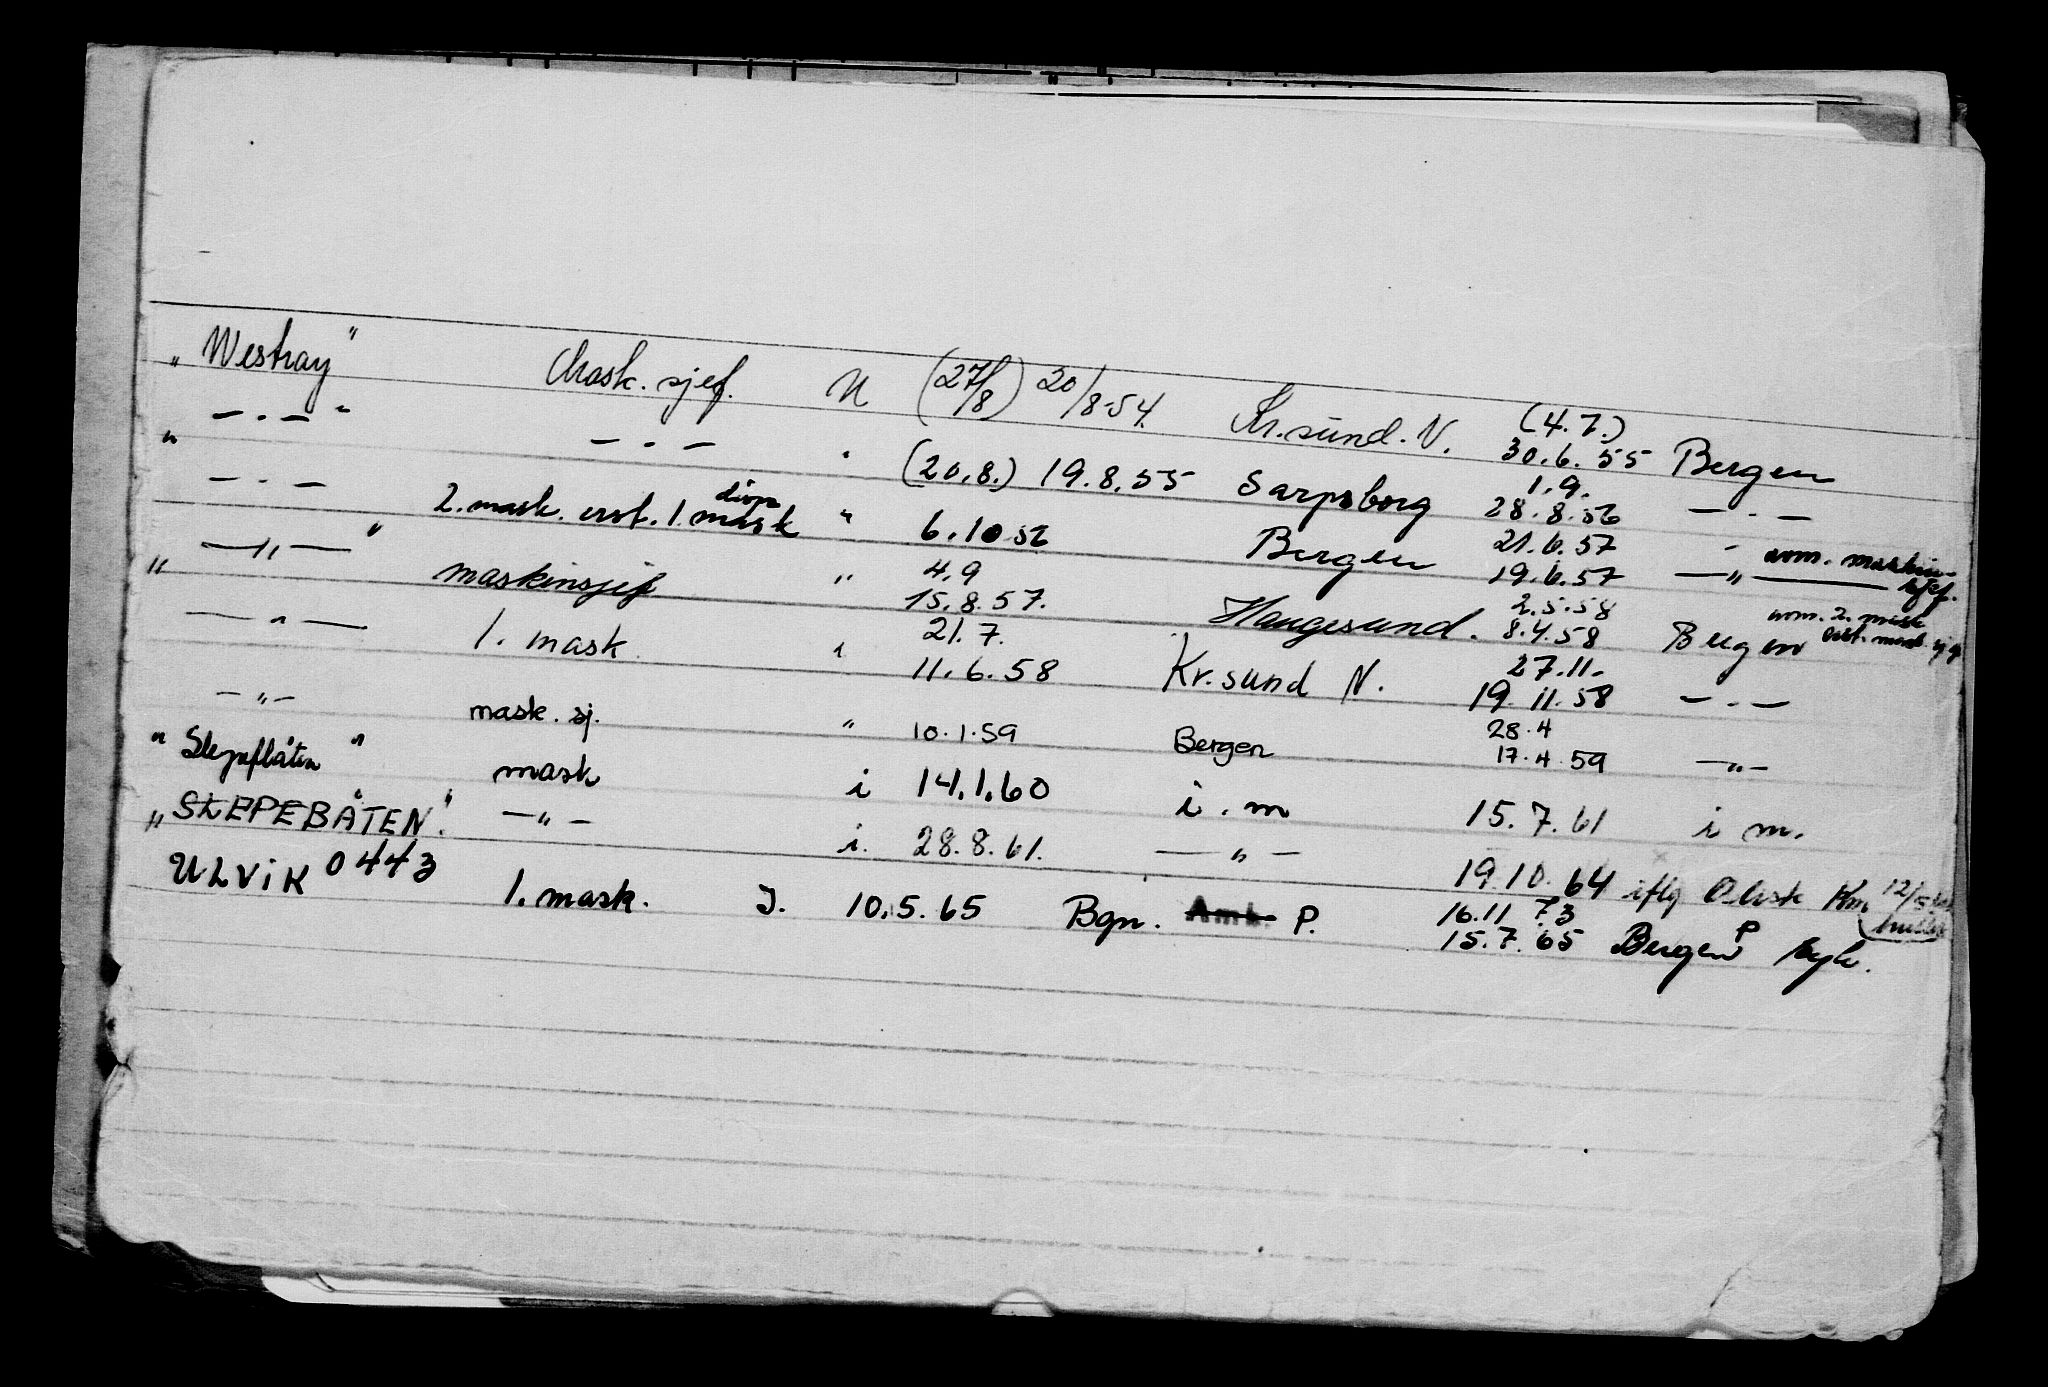 „ Westray" Mask. sjef. U (27/8) 20/8-54. Kr.sund. N. (4.7.) 30.6.55 Bergen
" — . — " — . — " (20.8.) 19.8.55 Sarpsborg 1.9. 28.8.56 — . —
— . — 2. mask. erst. 1. mask " 6.10 56 Bergen 21.6.57 19.6.57 — „ — som. maskinsjef.
" — „ — " maskinsjef „ 4.9 15.8.57. Haugesund. 2.5.58 8.4.58 Bergen som. 2. mask
— " — 1. mask. " 21.7. 11.6.58 Kr.sund N. 27.11. 19.11.58 — . —
— „ — mask. sj. " 10.1.59 Bergen 28.4 17.4.59 — „ —
" Slepeflåten " mask i 14.1.60 i . m 15.7.61 i m.
„ SLEPEBÅTEN". — „ — i. 28.8.61. — „ — 19.10.64 iflg
ULVIK 0443 1. mask. J. 10.5.65 Bgn. Amb. P. 16.11 73 15.7.65 Bergen P syk.